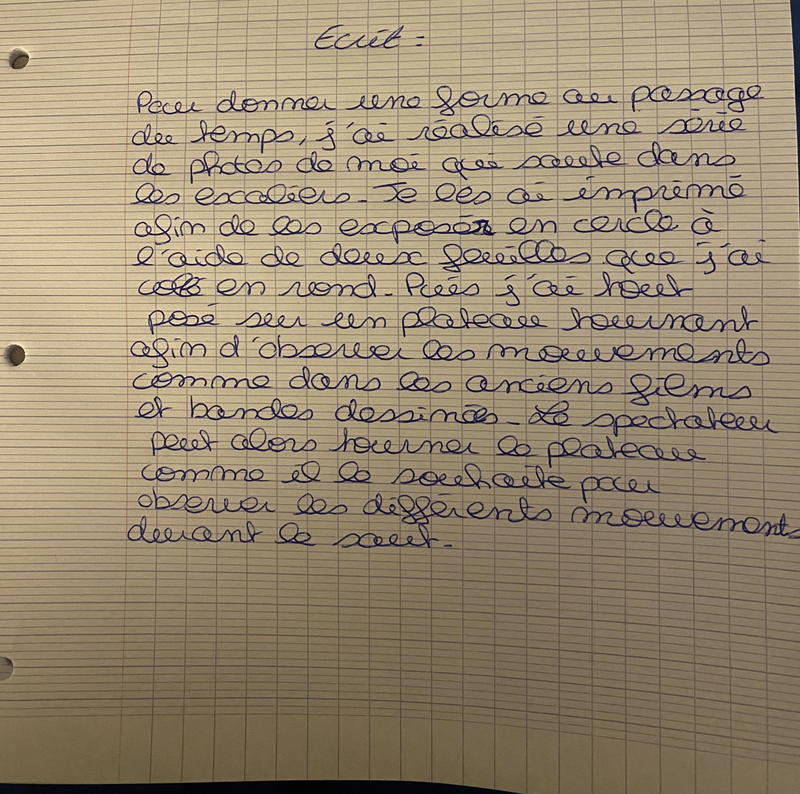 Ecrit :
Pour donner une forme au passage
du temps, j'ai réalisé une série
de photos de moi que saute dans
les escaliers. Je les ai imprimé
afin de les exposér en cercle à
l'aide de deux feuilles que j'ai
collé en rond. Puis j'ai tout
posé sur un plateau tournant
afin d'observer les mouvements
comme dans les anciens films
et bandes dessinés. Le spectateur
peut alors tourner le plateau
comme il le souhaite pour
observer les différents mouvements
durant le saut.